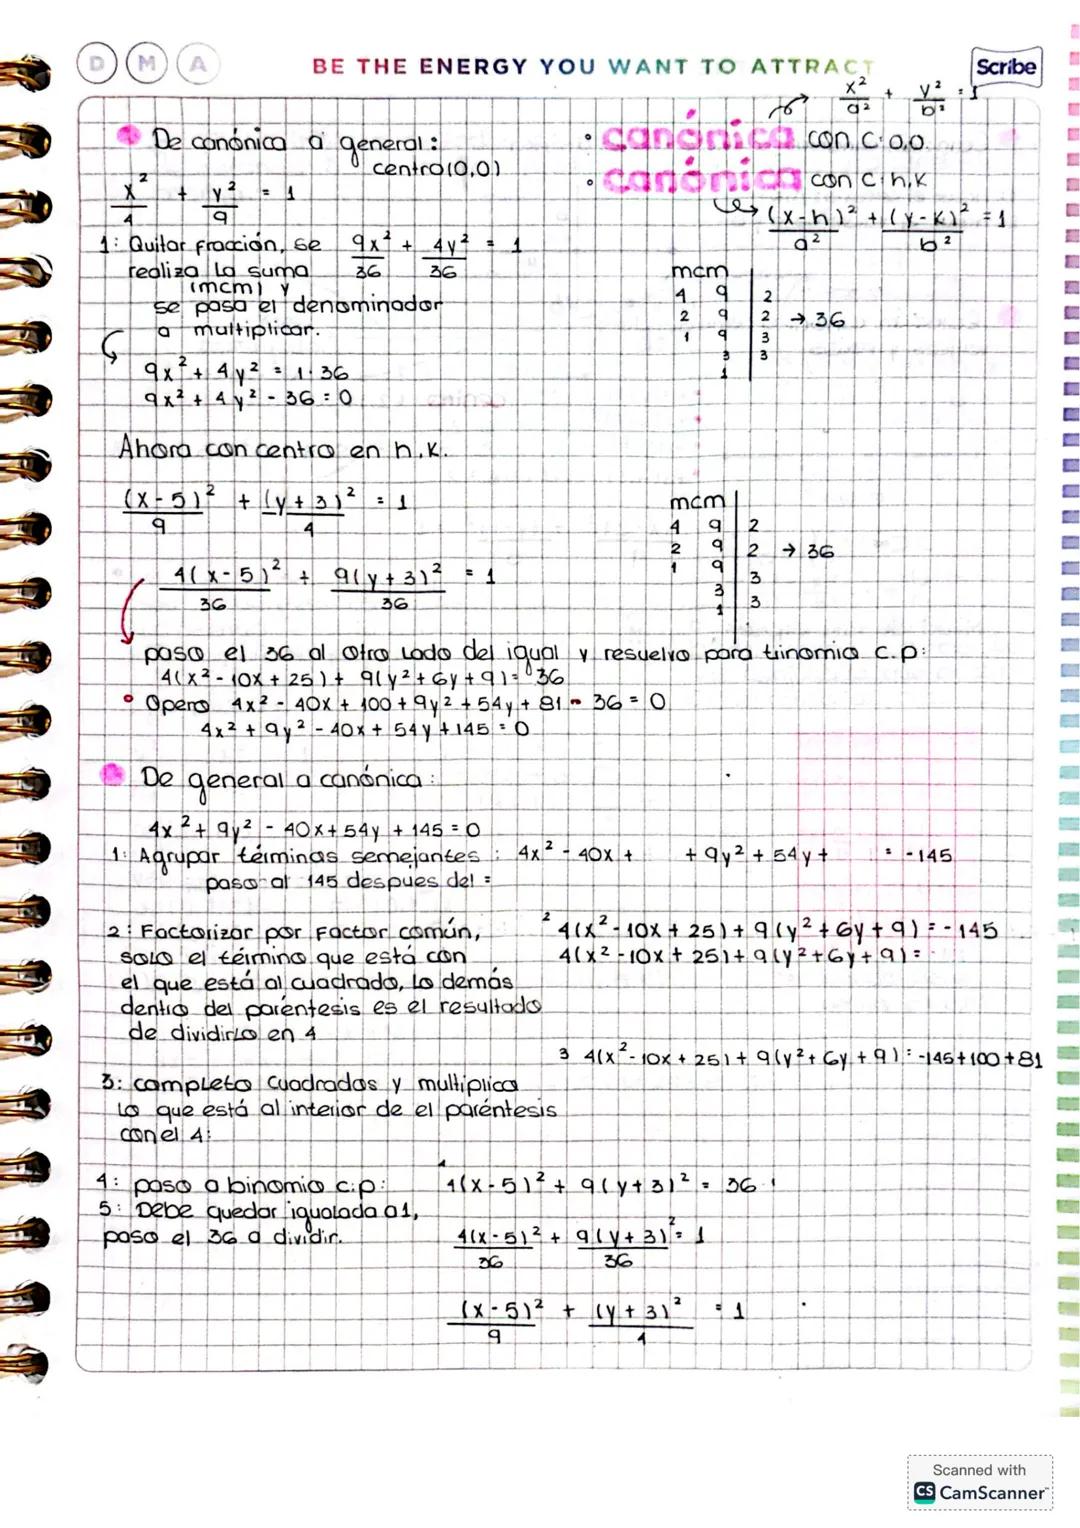 D M A
BE THE ENERGY YOU WANT TO ATTRACT
Scribe
x²/a² + y²/b² = 1
De canónica a general:
centro(0,0)
• canónica con C: 0,0.
• canónica con C: h,k
(x-h)²/a² + (y-k)²/b² = 1
x²/4 + y²/9 = 1
1: Quitar fracción, se
realiza la suma
(mcm) y
se pasa el denominador
a multiplicar.
9x²/36 + 4y²/36 = 1
mcm
4 9 | 2
2 9 | 2 → 36
1 9 | 3
3 | 3
1
9x² + 4y² = 1·36
9x² + 4y² - 36 = 0
Ahora con centro en h,k.
(x-5)²/9 + (y+3)²/4 = 1
mcm
4 9 | 2
2 9 | 2 → 36
1 9 | 3
3 | 3
1
4(x-5)²/36 + 9(y+3)²/36 = 1
paso el 36 al otro lado del igual y resuelvo para trinomio c.p:
4(x² - 10x + 25) + 9(y² + 6y + 9) = 36
• Opero 4x² - 40x + 100 + 9y² + 54y + 81 - 36 = 0
4x² + 9y² - 40x + 54y + 145 = 0
De general a canónica:
4x² + 9y² - 40x + 54y + 145 = 0
1: Agrupar términos semejantes: 4x² - 40x + + 9y² + 54y + = -145
paso al 145 despues del =
2: Factorizar por factor común,
solo el término que está con
el que está al cuadrado, lo demás
dentro del paréntesis es el resultado
de dividirlo en 4
2 4(x² - 10x + 25) + 9(y² + 6y + 9) = -145
4(x² - 10x + 25) + 9(y² + 6y + 9) =
3 4(x² - 10x + 25) + 9(y² + 6y + 9) = -145 + 100 + 81
3: completo cuadrados y multiplico
lo que está al interior de el paréntesis
con el 4:
4: paso a binomio c.p:
4 4(x-5)² + 9(y+3)² = 36
5: Debe quedar igualada a 1,
paso el 36 a dividir.
4(x-5)²/36 + 9(y+3)²/36 = 1
(x-5)²/9 + (y+3)²/4 = 1
Scanned with
CS CamScanner